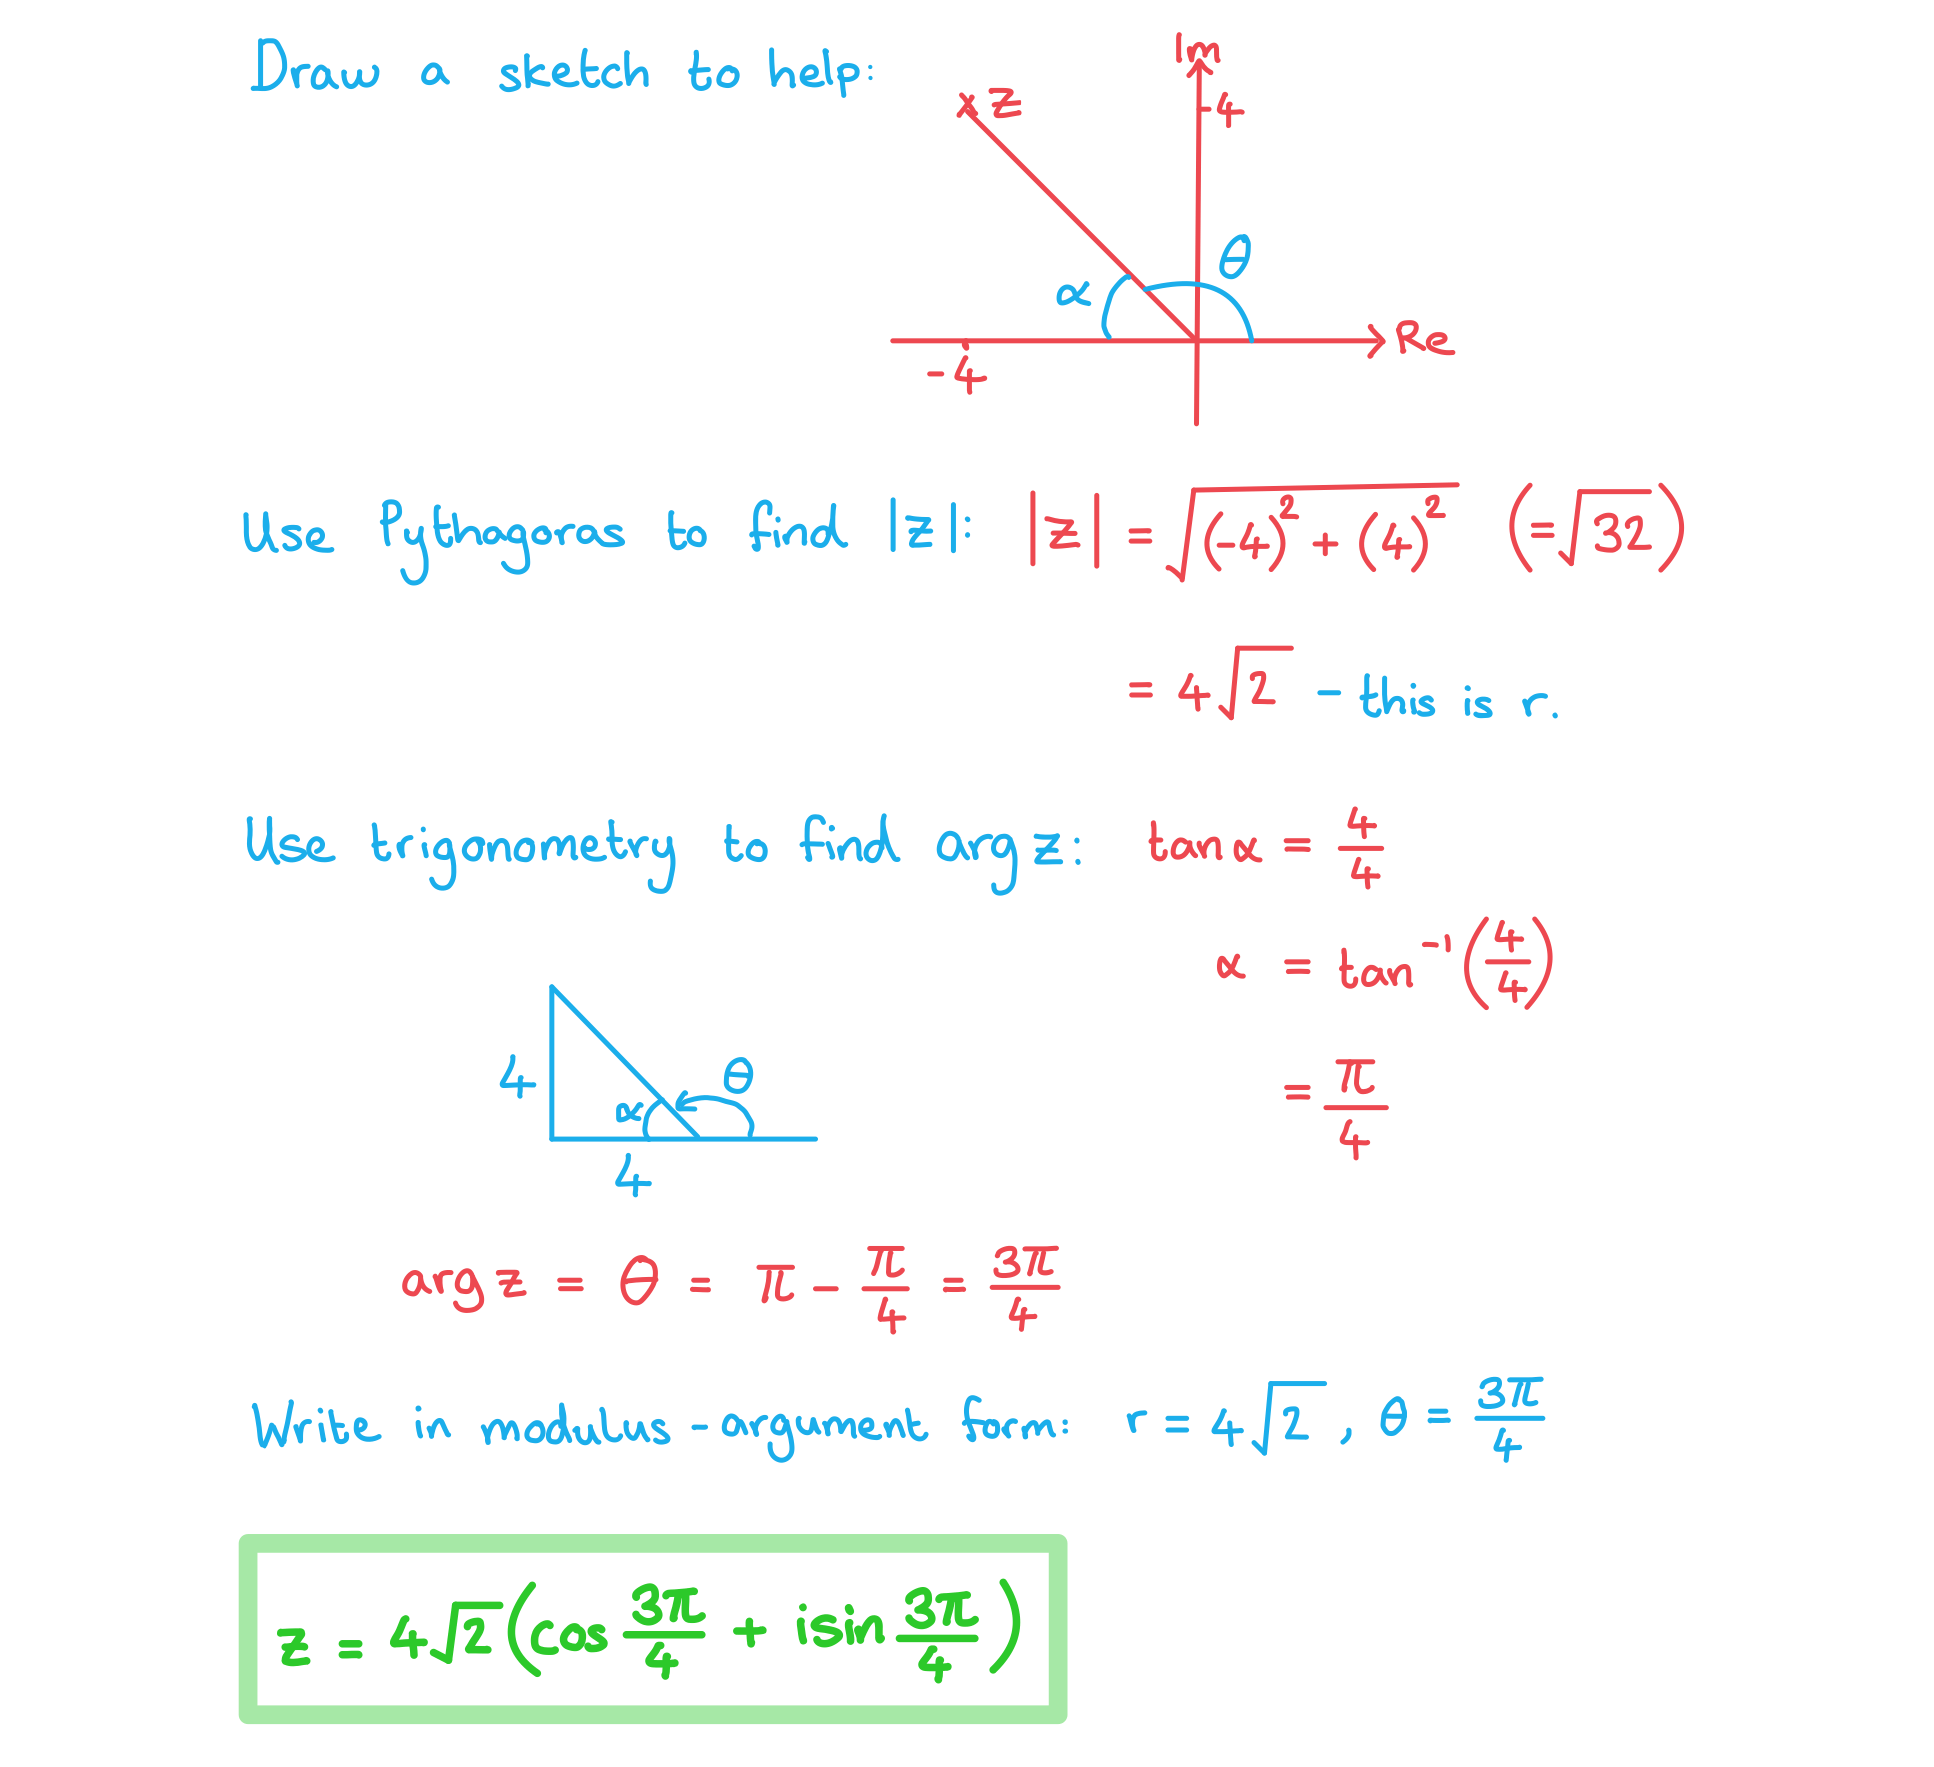 Draw a sketch to help:
Im
x z
4
θ
α
Re
-4
Use Pythagoras to find |z|: |z| = √((-4)² + (4)²) (= √32)
= 4√2 - this is r.
Use trigonometry to find arg z: tan α = 4/4
α = tan⁻¹(4/4)
= π/4
4
α
θ
4
arg z = θ = π - π/4 = 3π/4
Write in modulus-argument form: r = 4√2, θ = 3π/4
z = 4√2(cos 3π/4 + isin 3π/4)